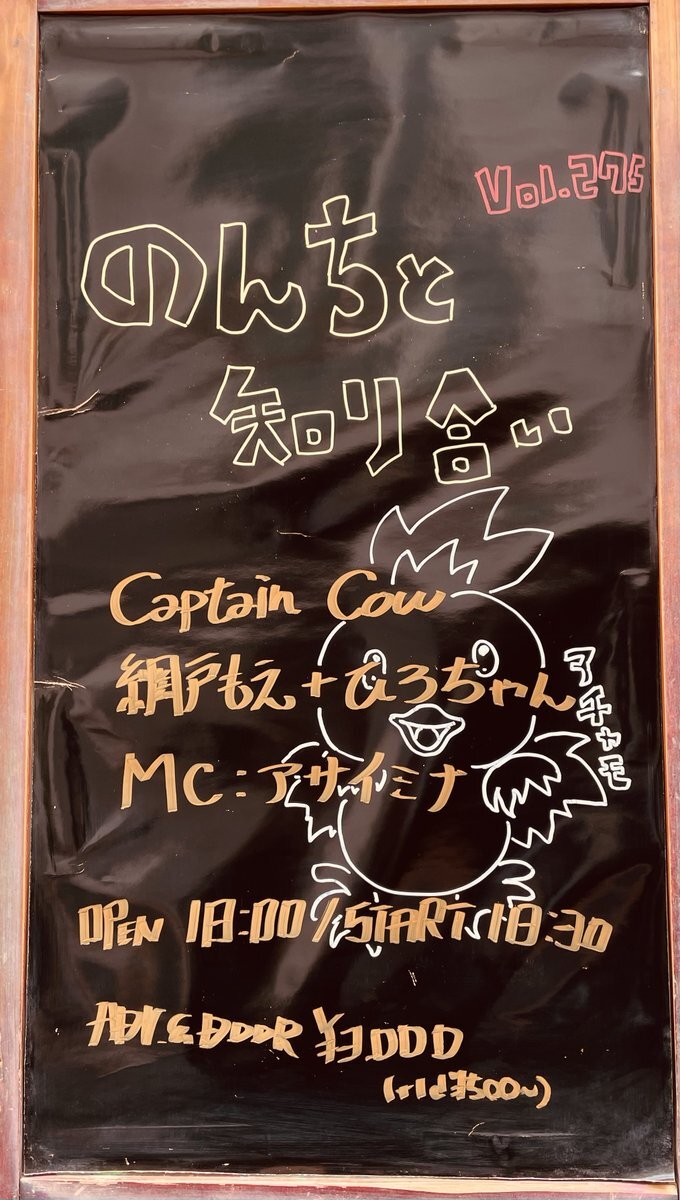 Vol.275
のんちと
知り合い
Captain Cow
網戸もえ+ひろちゃん
アチャモ
MC:アサイミナ
OPEN 18:00/START 18:30
ADV.&DOOR ¥3000
(+1d ¥500~)